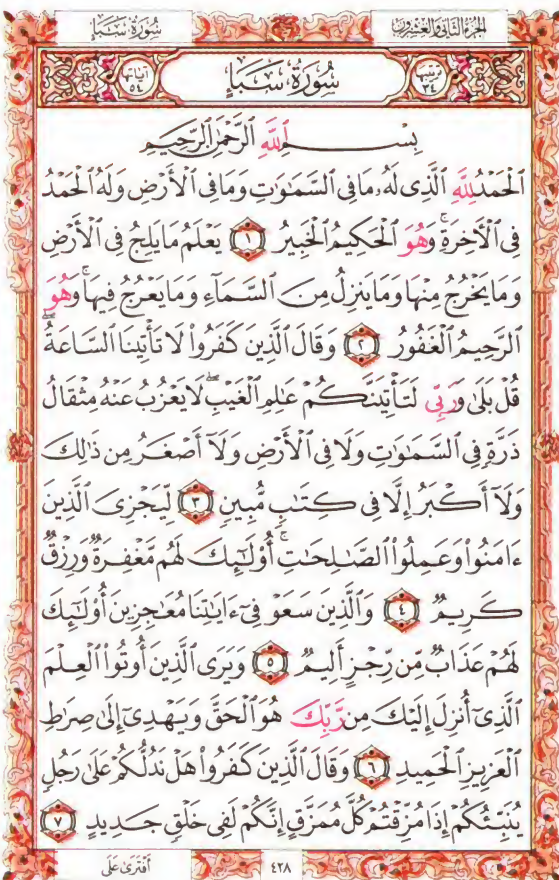 سُورَةُ سَبَإٍ
الجُزءُ الثَّانِي وَالعِشْرُونَ
ترتيبها ٣٤
سُورَةُ سَبَإٍ
آياتها ٥٤
بِسْمِ ٱللَّهِ ٱلرَّحْمَٰنِ ٱلرَّحِيمِ
ٱلْحَمْدُ لِلَّهِ ٱلَّذِى لَهُۥ مَا فِى ٱلسَّمَٰوَٰتِ وَمَا فِى ٱلْأَرْضِ وَلَهُ ٱلْحَمْدُ
فِى ٱلْأَخِرَةِ ۚ وَهُوَ ٱلْحَكِيمُ ٱلْخَبِيرُ ١ يَعْلَمُ مَا يَلِجُ فِى ٱلْأَرْضِ
وَمَا يَخْرُجُ مِنْهَا وَمَا يَنزِلُ مِنَ ٱلسَّمَآءِ وَمَا يَعْرُجُ فِيهَا ۚ وَهُوَ
ٱلرَّحِيمُ ٱلْغَفُورُ ٢ وَقَالَ ٱلَّذِينَ كَفَرُوا۟ لَا تَأْتِينَا ٱلسَّاعَةُ ۖ
قُلْ بَلَىٰ وَرَبِّى لَتَأْتِيَنَّكُمْ عَٰلِمِ ٱلْغَيْبِ ۖ لَا يَعْزُبُ عَنْهُ مِثْقَالُ
ذَرَّةٍ فِى ٱلسَّمَٰوَٰتِ وَلَا فِى ٱلْأَرْضِ وَلَآ أَصْغَرُ مِن ذَٰلِكَ
وَلَآ أَكْبَرُ إِلَّا فِى كِتَٰبٍ مُّبِينٍ ٣ لِّيَجْزِىَ ٱلَّذِينَ
ءَامَنُوا۟ وَعَمِلُوا۟ ٱلصَّٰلِحَٰتِ ۚ أُو۟لَٰٓئِكَ لَهُم مَّغْفِرَةٌ وَرِزْقٌ
كَرِيمٌ ٤ وَٱلَّذِينَ سَعَوْ فِىٓ ءَايَٰتِنَا مُعَٰجِزِينَ أُو۟لَٰٓئِكَ
لَهُمْ عَذَابٌ مِّن رِّجْزٍ أَلِيمٌ ٥ وَيَرَى ٱلَّذِينَ أُوتُوا۟ ٱلْعِلْمَ
ٱلَّذِىٓ أُنزِلَ إِلَيْكَ مِن رَّبِّكَ هُوَ ٱلْحَقَّ وَيَهْدِىٓ إِلَىٰ صِرَٰطِ
ٱلْعَزِيزِ ٱلْحَمِيدِ ٦ وَقَالَ ٱلَّذِينَ كَفَرُوا۟ هَلْ نَدُلُّكُمْ عَلَىٰ رَجُلٍ
يُنَبِّئُكُمْ إِذَا مُزِّقْتُمْ كُلَّ مُمَزَّقٍ إِنَّكُمْ لَفِى خَلْقٍ جَدِيدٍ ٧
٤٢٨
أَفْتَرَىٰ عَلَى